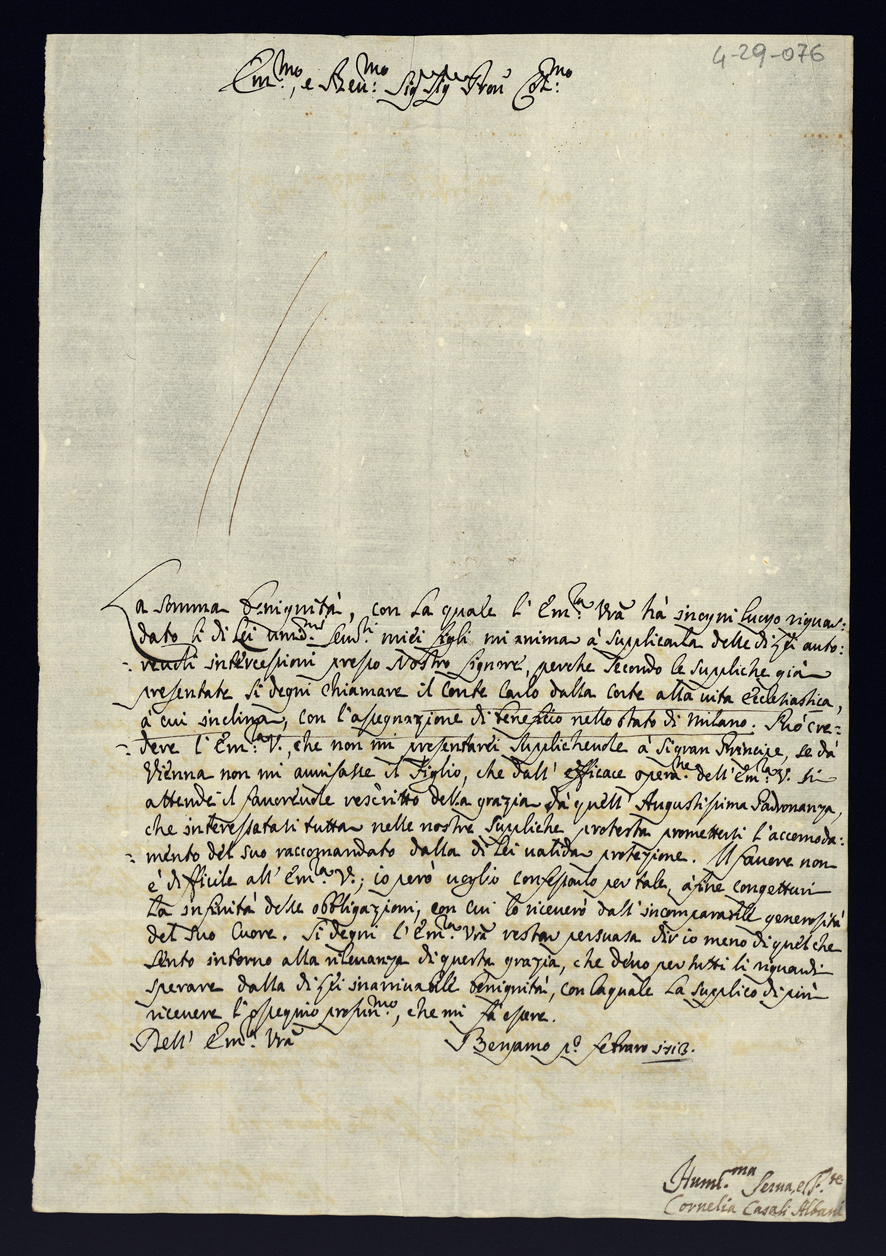 4-29-076
Em.mo, e Reu.mo Sig.r Sig.r Pron Col.mo
La somma benignità, con la quale l'Em.za Vrâ hà in ogni luogo riguar:
dato li di lei umil.mi Seru.ti miei figli mi anima à supplicarla delle di Lei auto:
reuoli intercessioni presso Nostro Signore, perche secondo le suppliche già
presentate si degni chiamare il Conte Carlo dalla corte alla vita Eclesiastica,
à cui inclina, con l'assegnazione di benefitio nello stato di Milano. Può cre:
dere l'Em.za V., che non mi presentarei supplicheuole à sì gran Principe, se dà
Vienna non mi auuisasse il Figlio, che dall'efficace opera dell'Em.za V. si
attende il fauoreuole rescritto della grazia dà quell'Augustissima Padronanza,
che interessatasi tutta nelle nostre suppliche protesta promettersi l'accomoda:
mento del suo raccomandato dalla di Lei ualida protezione. Il fauore non
è difficile all'Em.za V.; io però ueglio confessarlo per tale, àfine congetturi
la infinità delle obbligazioni, con cui lo riceuerò dall'incomparabile generosità
del suo Cuore. Si degni l'Em.za Vrâ restar persuasa dir io meno di quel che
sento intorno alla rileuanza di questa grazia, che deuo per tutti li riguardi
sperare dalla di Lei inarriuabile benignità, con la quale la supplico di più
riceuere l'ossequio profun.mo, che mi fà essere.
Dell'Em.za Vrâ
Bergamo p.o febraro 1713.
Humil.ma Serua,
Cornelia Casati Albani